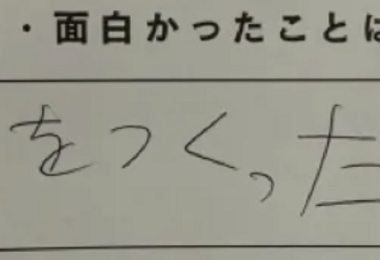 ・面白かったことは
をつくった